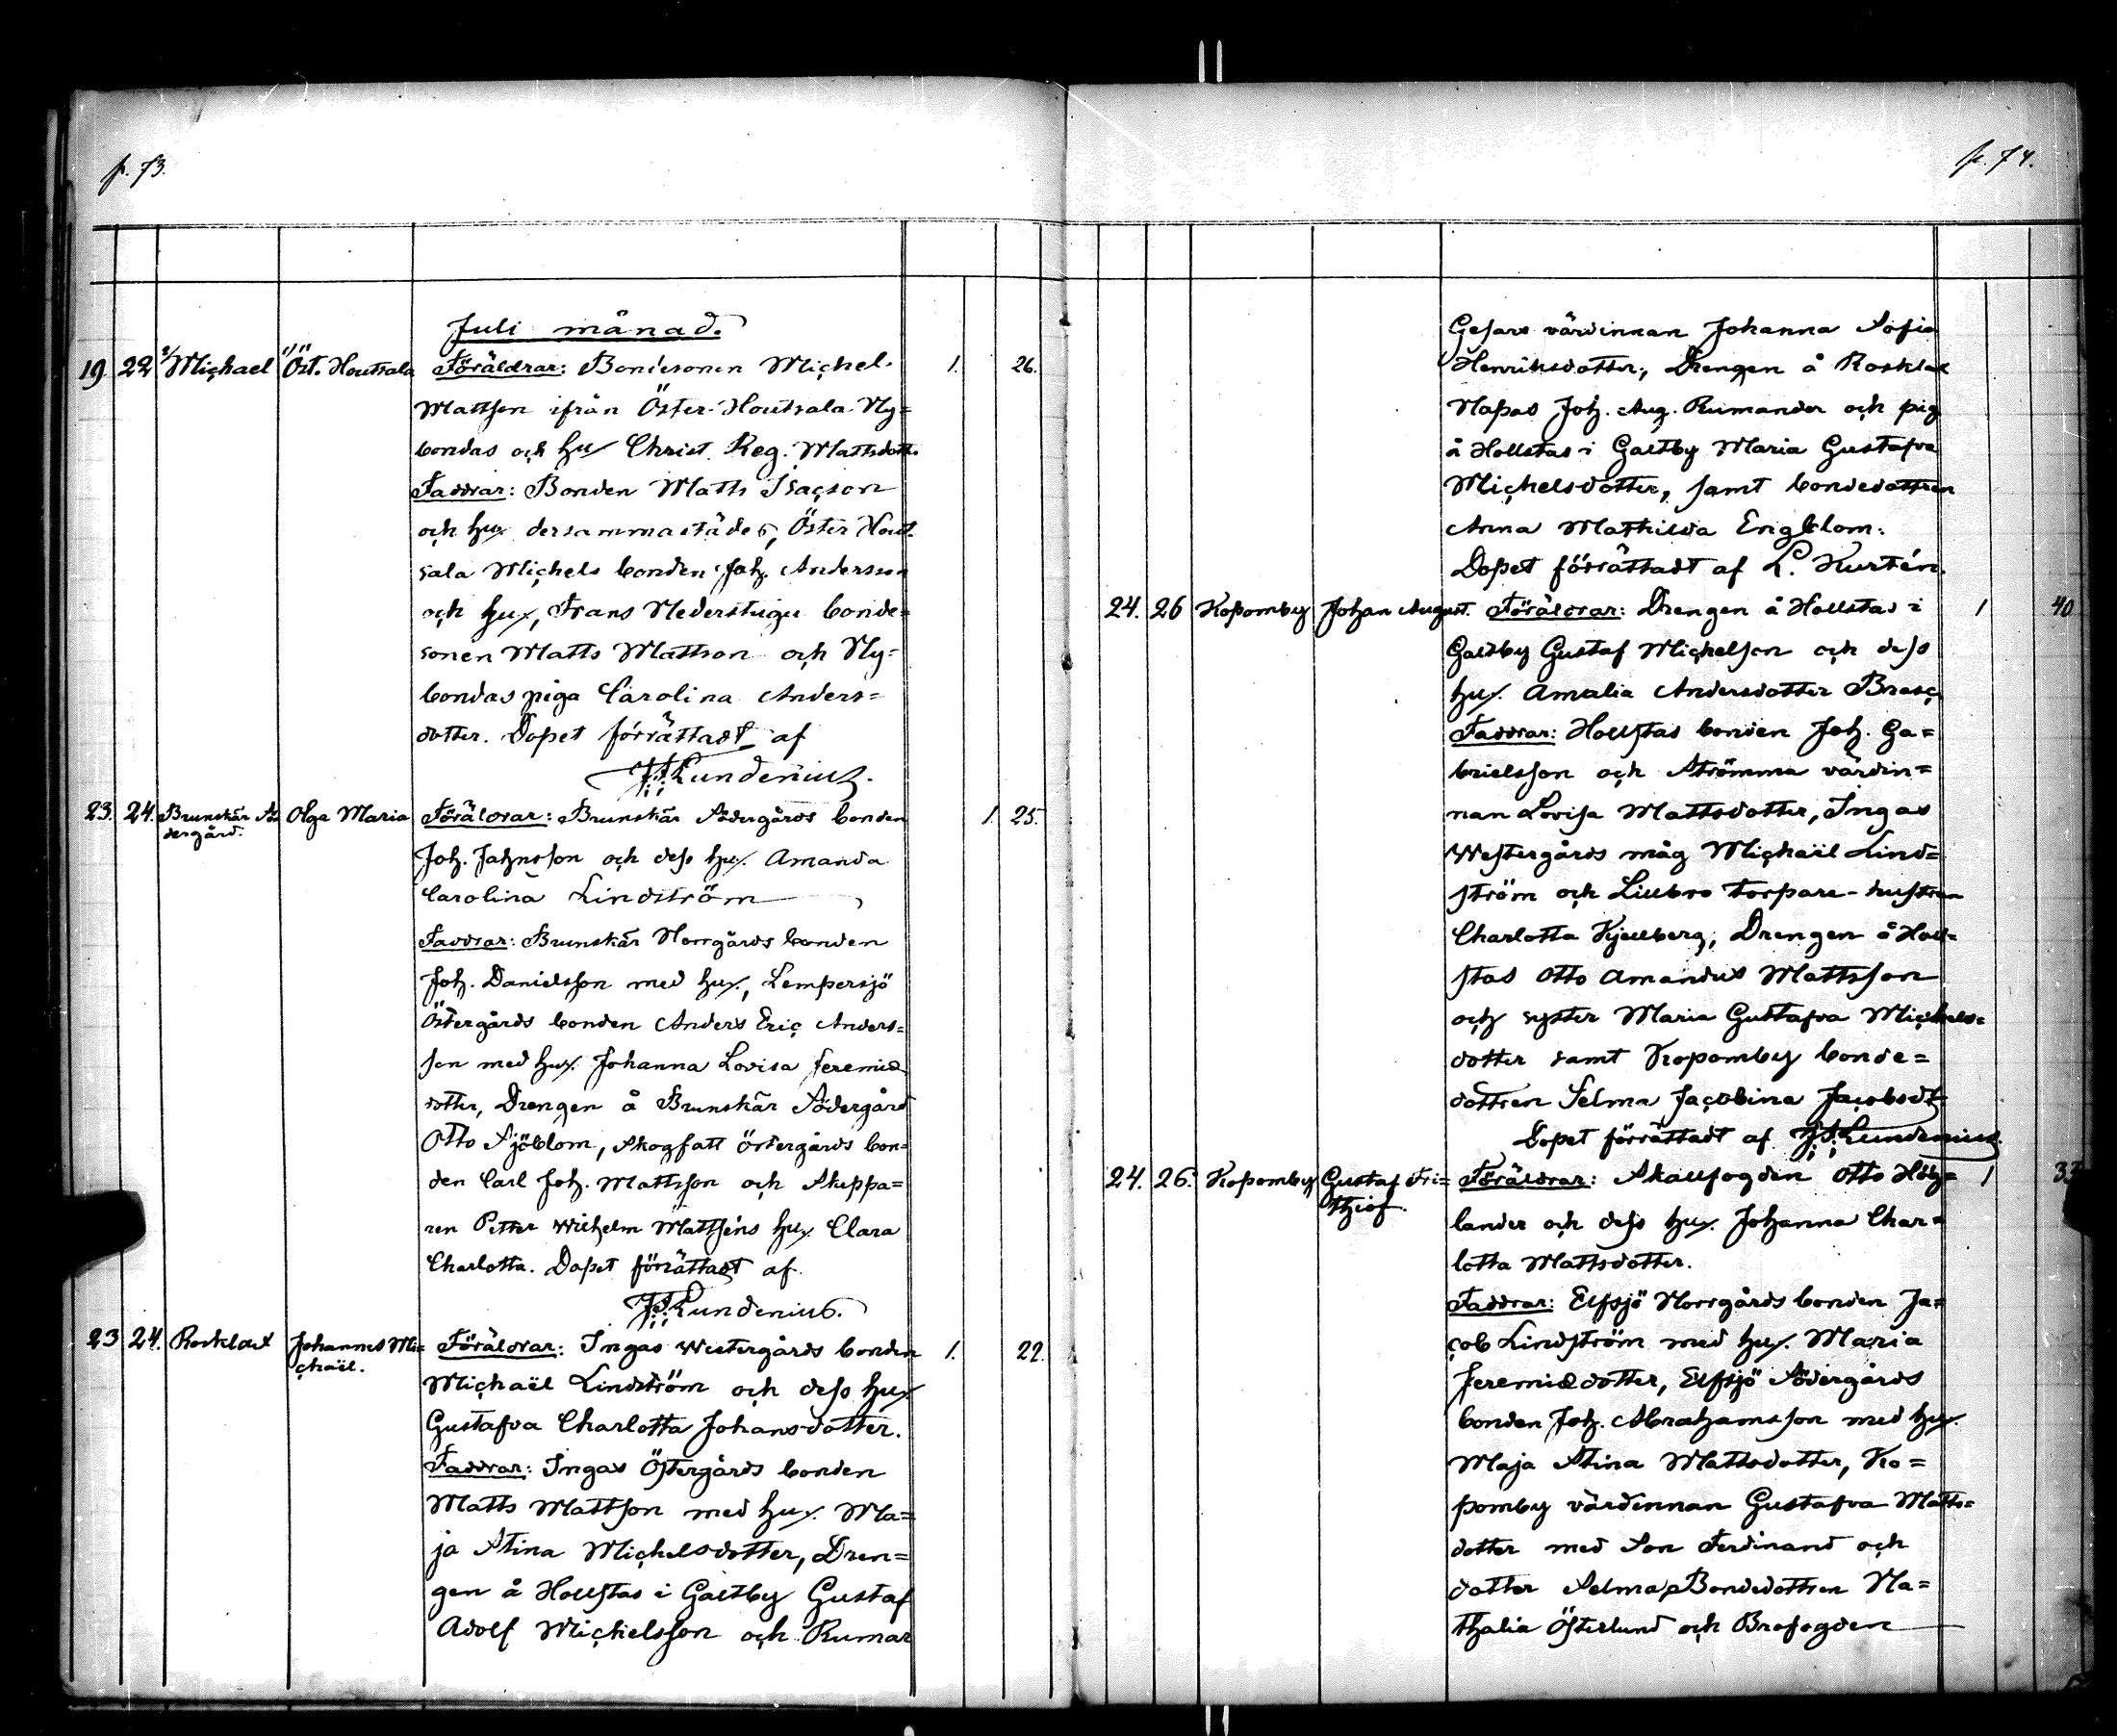 p. 73.
Juli månad.
19. 22 Michael Öst. Houtsala Föräldrar: Bondesonen Michel 1. 26.
Mattsson ifrån Öster-Houtsala Ny=
bondas och hu Christ. Reg. Mattsdott.
Faddrar: Bonden Matts Isacson
och hu dersammastädes, Öster Hout-
sala Michels bonden Joh. Andersson
och hu, Frans Nederstugu bonde=
sonen Matts Mattson och Ny=
bondas piga Carolina Anders=
dotter. Dopet förrättadt af
J. J. Lundenius.
23. 24. Brunskär Sö Olga Maria Föräldrar: Brunskär Södergårds bonden 1. 25.
dergård.
Joh. Johnsson och dess hu. Amanda
Carolina Lindström
Faddrar: Brunskär Norrgårds bonden
Joh. Danielsson med hu., Lempersjö
Östergårds bonden Anders Eric Anders=
son med hu. Johanna Lovisa Jeremiæ
dotter, Drengen å Brunskär Södergård
Otto Sjöblom, Skogfatt Östergårds bon=
den Carl Joh. Mattsson och Skeppa=
ren Petter Wilhelm Mattséns hu. Clara
Charlotta. Dopet förrättadt af
J. J. Lundenius.
23 24. Rosklax Johannes Mi= Föräldrar: Ingas Westergårds bonden 1. 22.
chaël.
Michaël Lindström och dess hu
Gustafva Charlotta Johansdotter.
Faddrar: Ingas Östergårds bonden
Matts Mattson med hu. Ma=
ja Stina Michelsdotter, Dren=
gen å Hollstas i Galtby Gustaf
Adolf Michelsson och Rumar
p. 74.
Gesars värdinnan Johanna Sofia
Henriksdotter, Drengen å Rosklax
Napas Joh. Aug. Rumander och pig
å Hollstas i Galtby Maria Gustafva
Michelsdotter, samt bondedottren
Anna Mathilda Engblom.
Dopet förrättadt af L. Kurtén.
24. 26 Kopomby Johan August. Föräldrar: Drengen å Hollstas i 1 40
Galtby Gustaf Michelson och dess
hu. Amalia Andersdotter
Faddrar: Hollstas bonden Joh. Ga=
brielsson och Strömma värdin=
nan Lovisa Mattsdotter, Ingas
Westergårds måg Michaël Lind=
ström och Lillbro torpare-hustrun
Charlotta Kjellberg, Drengen å Holl=
stas Otto Amandus Mattsson
och syster Maria Gustafva Michels=
dotter samt Kopomby bonde=
dottren Selma Jacobina Jacobsdt.
Dopet förrättadt af J. J. Lundenius.
24. 26. Kopomby Gustaf Fri= Föräldrar: Skallfogden Otto Hög= 1 33
thiof.
lander och dess hu. Johanna Char=
lotta Mattsdotter.
Faddrar: Elfsjö Norrgårds bonden Ja=
cob Lindström med hu. Maria
Jeremiædotter, Elfsjö Södergårds
bonden Joh. Abrahamsson med hu.
Maja Stina Mattsdotter, Ko=
pomby värdinnan Gustafva Matts=
dotter med Son Ferdinand och
dotter Selma, Bondedottren Na=
thalia Österlund och Brofogden